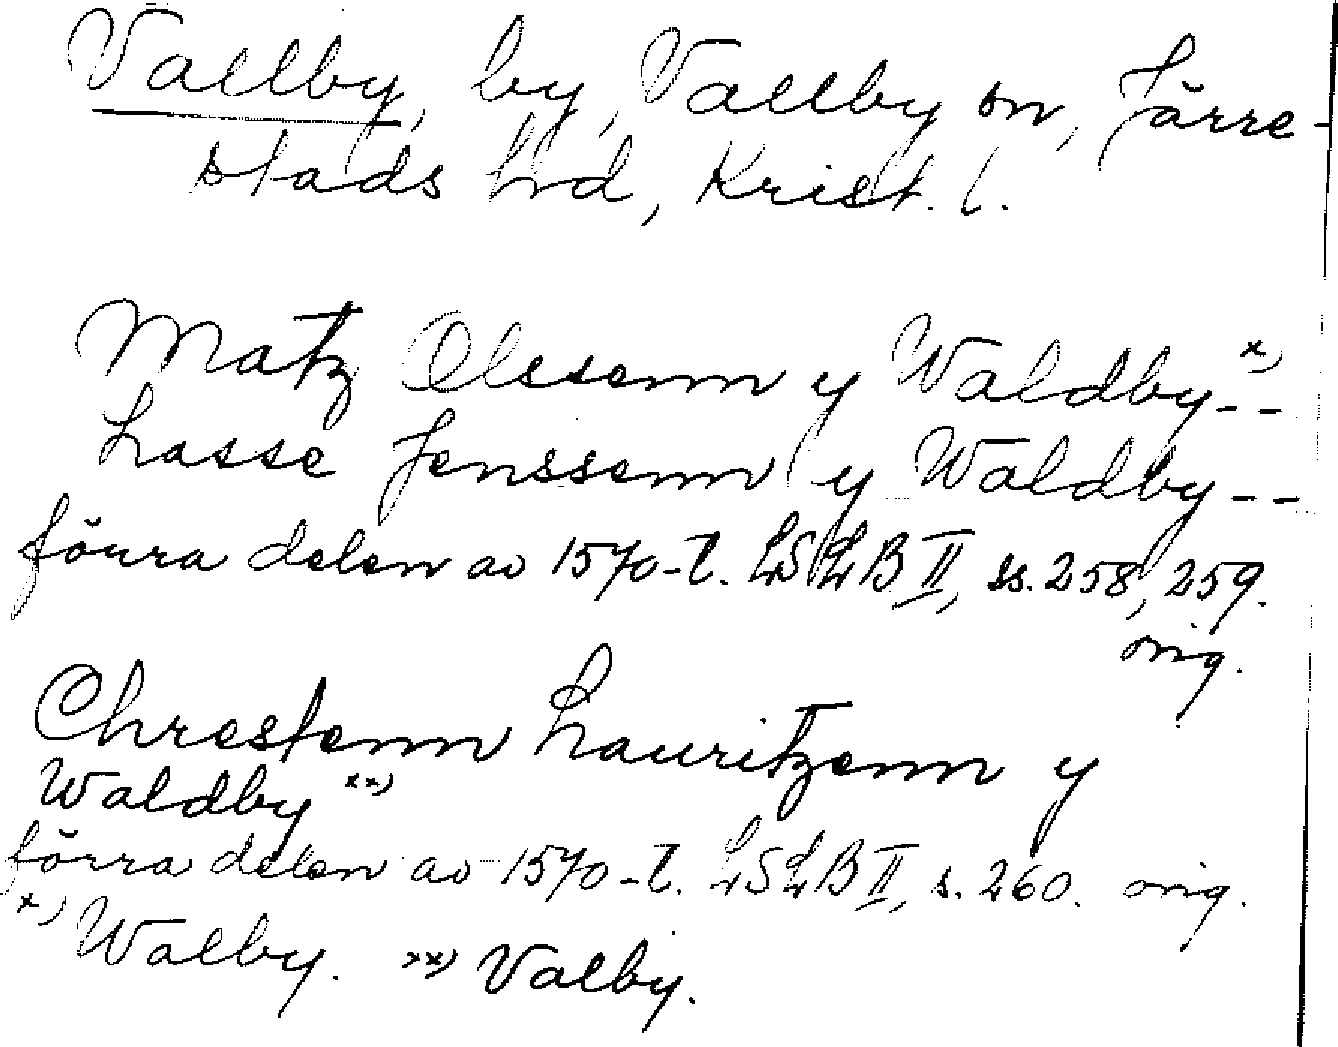 Vallby, by, Vallby sn, Järre-
stads hrd, Krist. l.
Matz Olssenn y Waldby x) --
Lasse Jenssenn y Waldby --
förra delen av 1570-t. LSLB II, ss. 258, 259.
orig.
Chrestenn Lauritzenn y
Waldby xx)
förra delen av 1570-t. LSLB II, s. 260. orig.
x) Walby. xx) Valby.